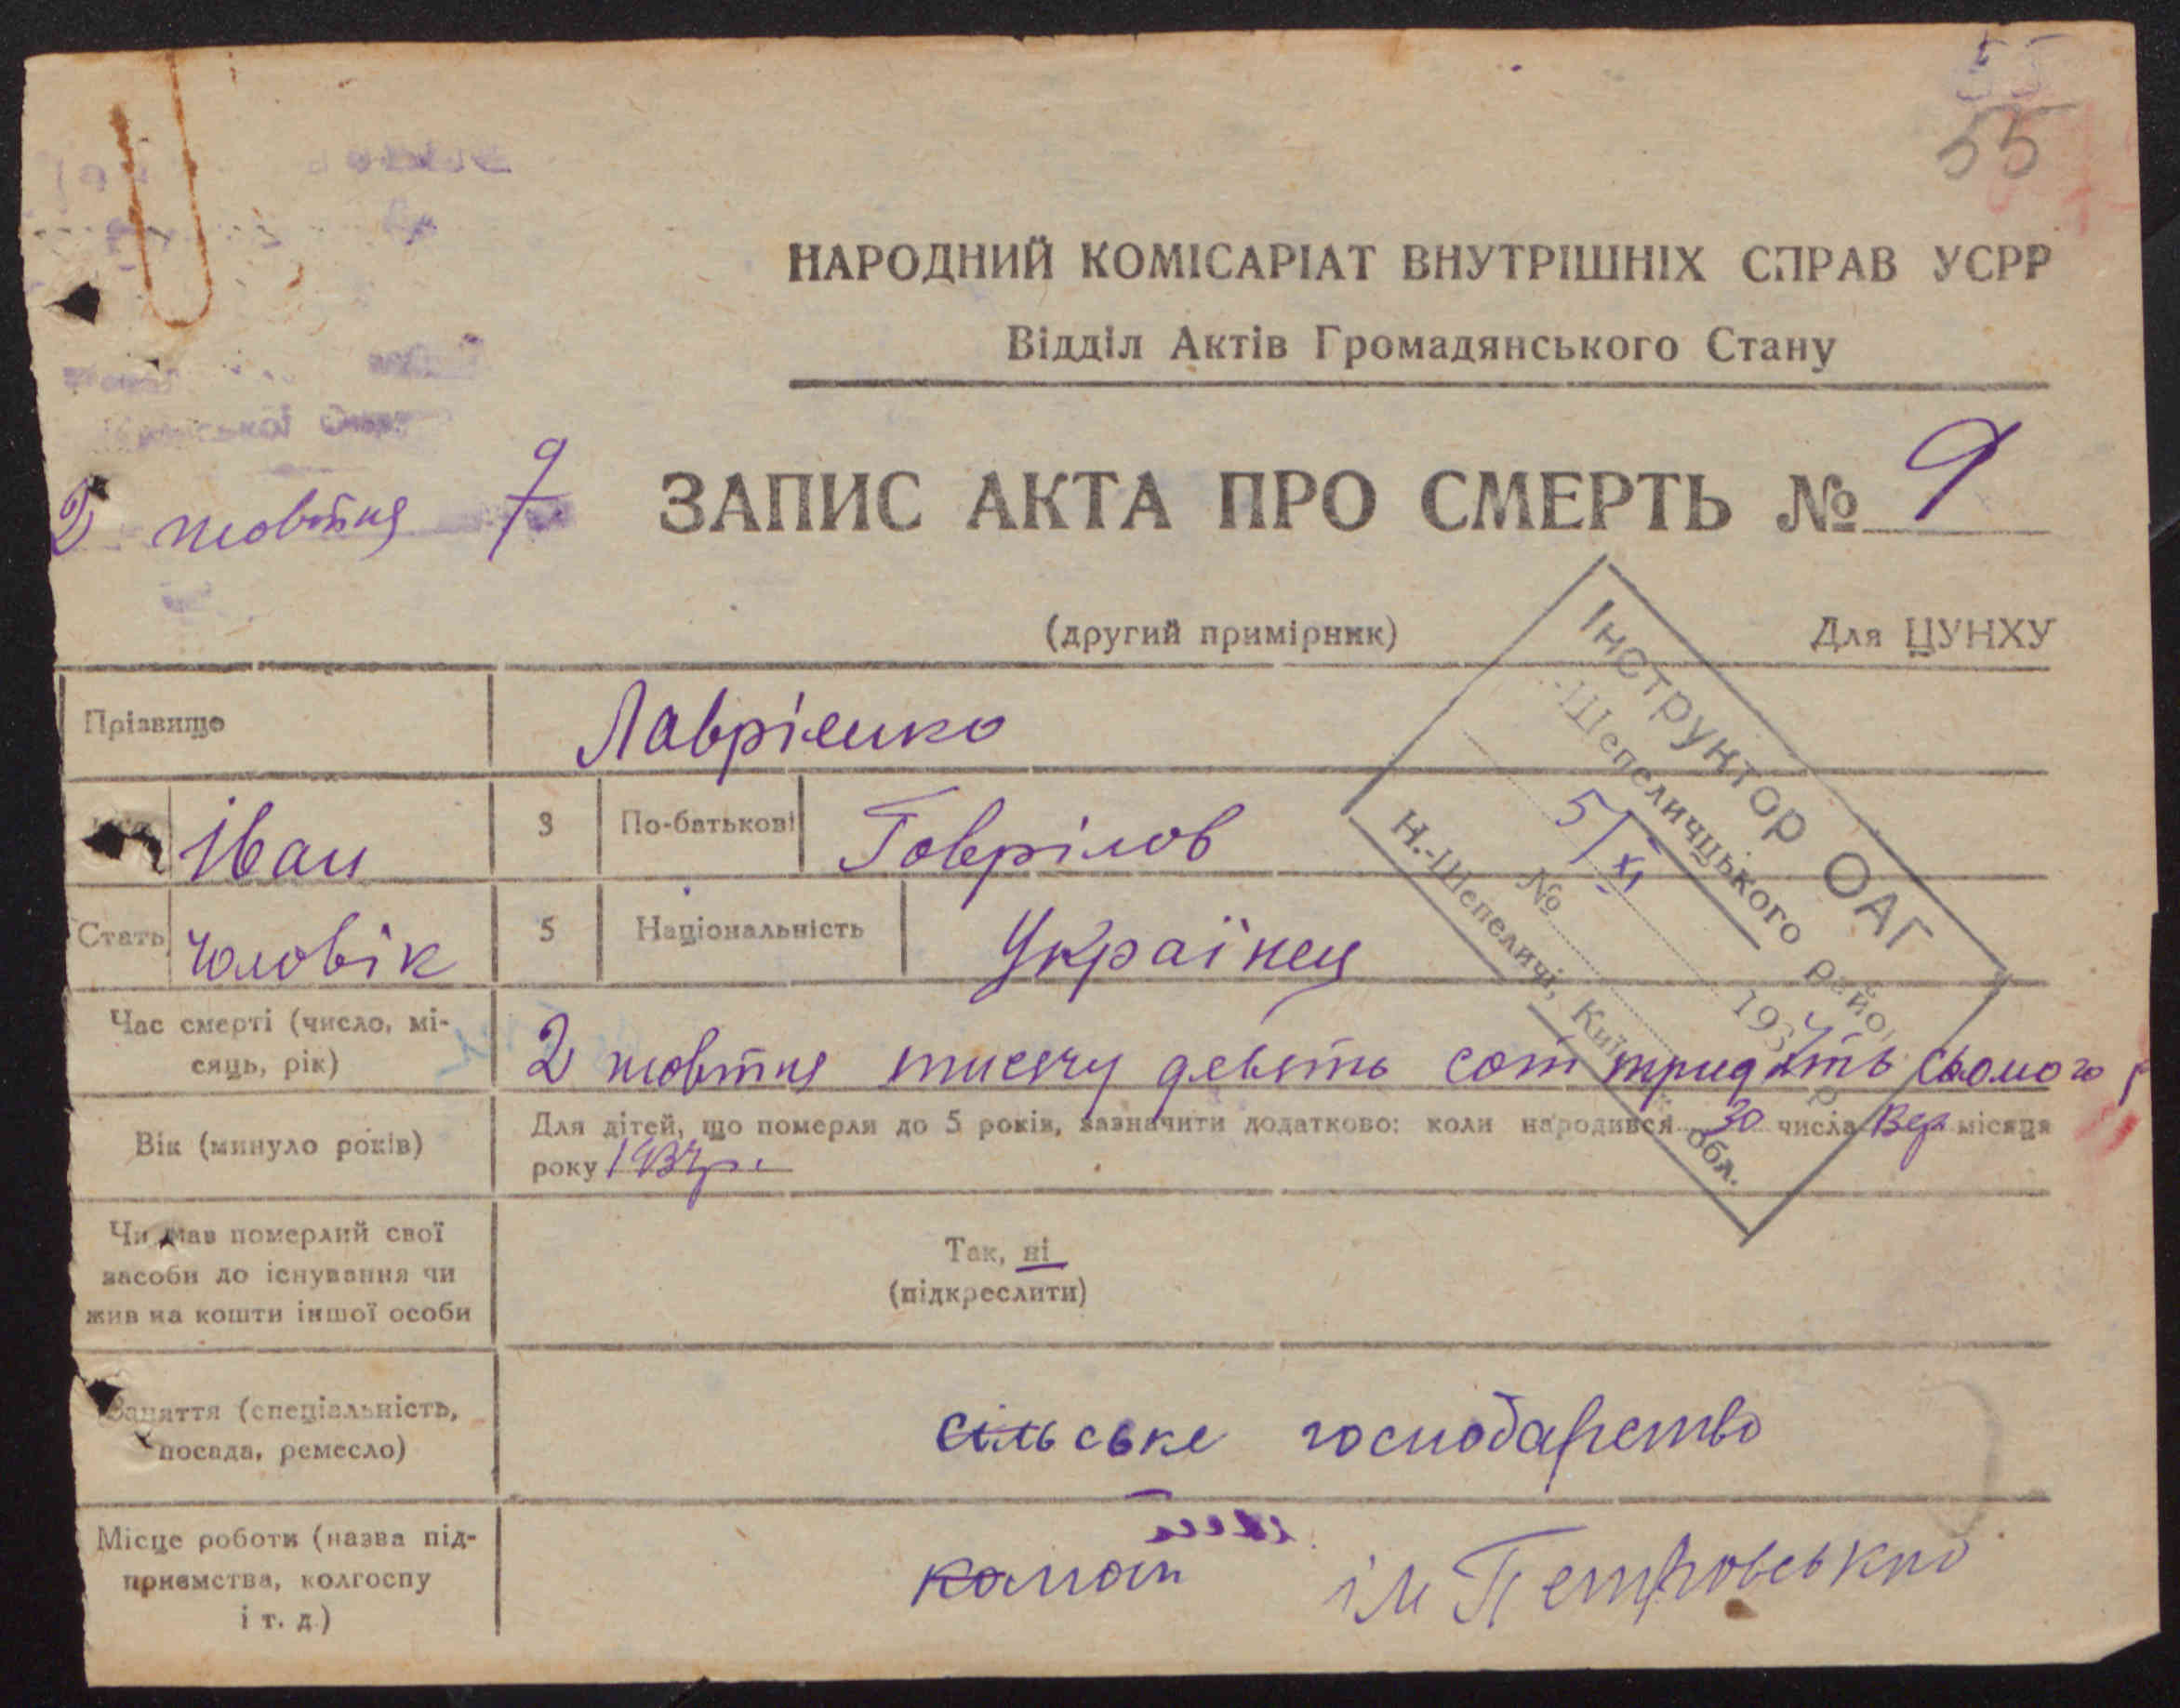 55
55
НАРОДНИЙ КОМІСАРІАТ ВНУТРІШНІХ СПРАВ УСРР
Відділ Актів Громадянського Стану
2 жовтня 7 9
ЗАПИС АКТА ПРО СМЕРТЬ № 9
(другий примірник) Для ЦУНХУ
Інструктор ОАГ
-Шепеличцького райо
5/XI 1937 р.
№
Н.-Шепеличі, Київ обл.
Прізвище Лавріенко
Іван 3 По-батькові Гаврілов
Стать чоловік 5 Національність Українец
Час смерті (число, мі-
сяць, рік) 2 жовтня тисячу девять сот тридцять сьомого р
Вік (минуло років) Для дітей, що померли до 5 років, зазначити додатково: коли народився 30 числа Вер місяця
року 1937р.
Чи мав померлий свої
засоби до існування чи
жив на кошти іншої особи
Так, ні
(підкреслити)
Заняття (спеціальність,
посада, ремесло) сільське господарство
Місце роботи (назва під-
приємства, колгоспу
і т. д.) ім Петровського